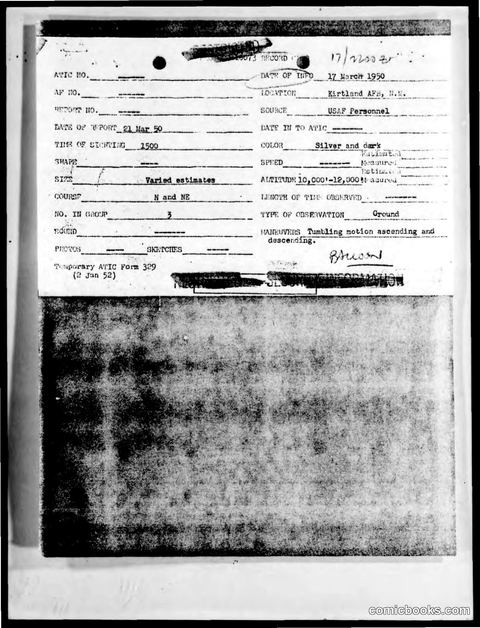 10073 RECORD 17/2200 Z
ATIC NO. ------ DATE OF INFO 17 March 1950
AF NO. ----- LOCATION Kirtland AFB, N.M.
REPORT NO. ----- SOURCE USAF Personnel
DATE OF REPORT 21 Mar 50 DATE IN TO ATIC ------
TIME OF SIGHTING 1500 COLOR Silver and dark
SHAPE ---- SPEED ------ Estimated Measured
SIZE Varied estimates ALTITUDE 10,000'-12,000 Estimated Measured
COURSE N and NE LENGTH OF TIME OBSERVED ------
NO. IN GROUP 3 TYPE OF OBSERVATION Ground
SOUND ------ MANEUVERS Tumbling motion ascending and
descending.
PHOTOS ---- SKETCHES -----
Temporary ATIC Form 329
(2 Jan 52)
INFORMATION
comicbooks.com